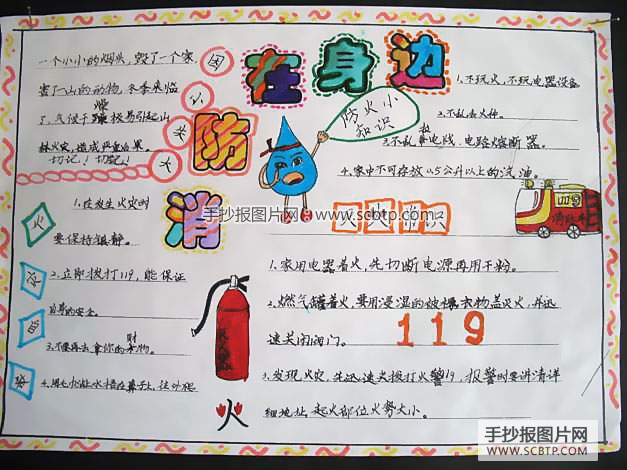 消防在身边
一个小小的烟火，毁了一个家
害了一山的动物，冬季来临
了，气候干燥极易引起山
林火灾，造成严重后果。
切记！切记！
防火小
知识
1.不玩火，不玩电器设备
2.不乱丢火种。
3.不乱拉电线、电路熔断器。
4.家中不可存放0.5公升以上的汽油。
1.在发生火灾时
要保持镇静。
2.立刻拨打119，能保证
自身的安全。
3.不要再去拿你的财物。
手抄报图片网 www.scbtp.com
1.家用电器着火，先切断电源再用干粉。
2.燃气罐着火，要用浸湿的被褥衣物盖灭火，并迅
速关闭阀门。
119
3.发现火灾，先迅速火拨打火警119，报警时要讲清详
细地址、起火部位火势大小。
火
手抄报图片网
WWW.SCBTP.COM